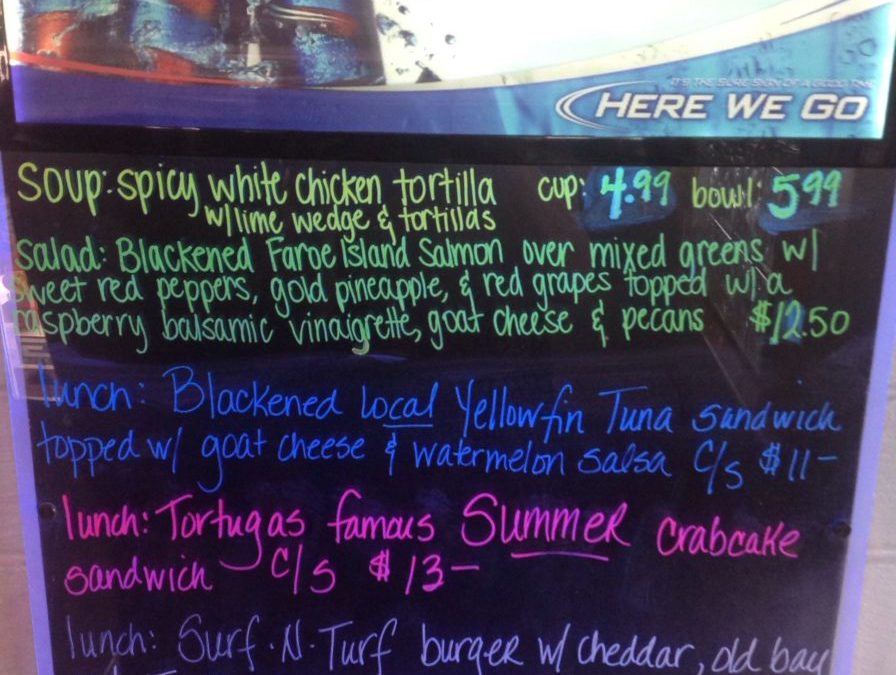 IT'S THE SURE SIGN OF A GOOD TIME
HERE WE GO
Soup: spicy white chicken tortilla cup: 4.99 bowl: 5.99
w/lime wedge & tortillas
Salad: Blackened Faroe Island Salmon over mixed greens w/
sweet red peppers, gold pineapple, & red grapes topped w/ a
raspberry balsamic vinaigrette, goat cheese & pecans $12.50
lunch: Blackened local Yellowfin Tuna sandwich
topped w/ goat cheese & watermelon salsa C/S $11-
lunch: Tortugas famous Summer crabcake
sandwich C/S $13-
lunch: Surf-N-Turf burger w/ cheddar, old bay